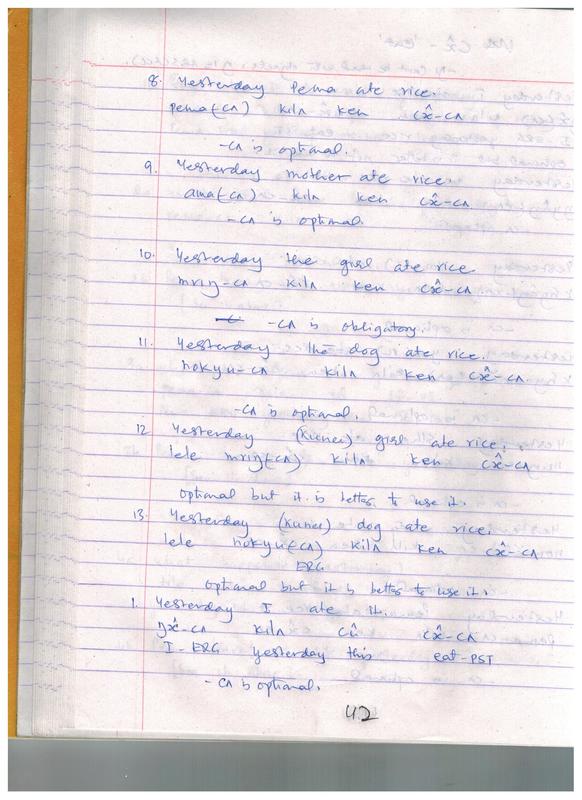 8. Yesterday Pema ate rice.
pema(-cʌ) kilʌ ken cx̂-cʌ
-cʌ is optional.
9. Yesterday mother ate rice.
ama(-cʌ) kilʌ ken cx̂-cʌ
-cʌ is optional.
10. Yesterday the girl ate rice
mriŋ-cʌ kilʌ ken cx̂-cʌ
-cʌ is obligatory.
11. Yesterday the dog ate rice.
nokyu-cʌ kilʌ ken cx̂-cʌ.
-cʌ is optional.
12 Yesterday (kunei) girl ate rice.
lele mriŋ(-cʌ) kilʌ ken cx̂-cʌ
optional but it is better to use it.
13. Yesterday (kunei) dog ate rice.
lele nokyu(-cʌ) kilʌ ken cx̂-cʌ
ERG
optional but it is better to use it.
1. Yesterday I ate it.
ŋx̂-cʌ kilʌ cû cx̂-cʌ
I-ERG yesterday this eat-PST
-cʌ is optional.
42